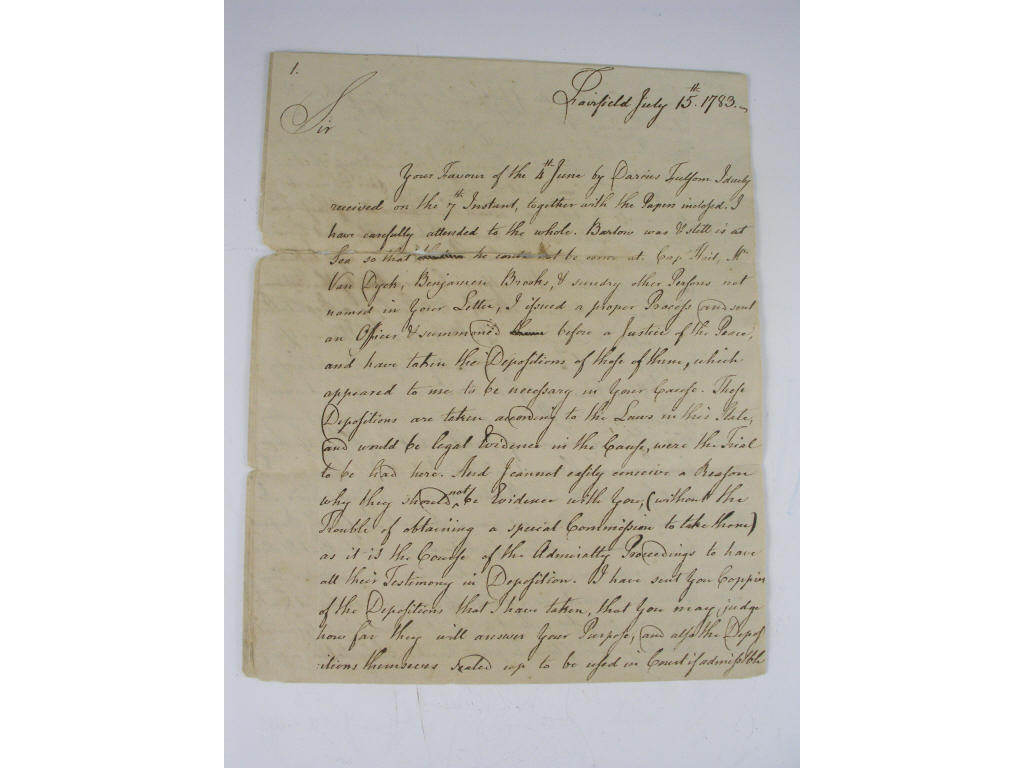 1.
Fairfield July 15th. 1783.
Sir
Your Favour of the 4th June by Darius Fulsom I duely
received on the 7th Instant, together with the Papers inclosed. I
have carefully attended to the whole. Barlow was & still is at
Sea so that he could not be come at. Cap Hait, Mr
Van Dyck, Benjamin Brooks, & sundry other Persons not
named in Your Letter, I issued a proper Process and sent
an Officer & summoned before a Justice of the Peace,
and have taken the Depositions of those of them, which
appeared to me to be necessary in Your Cause. These
Depositions are taken according to the Laws in this State,
and would be legal Evidence in the Cause, were the Trial
to be had here. And I cannot easily conceive a Reason
why they should not be Evidence with You, (without the
Trouble of obtaining a special Commission to take them)
as it is the Course of the Admiralty Proceedings to have
all their Testimony in Deposition. I have sent You Coppies
of the Depositions that I have taken, that You may judge
how far they will answer Your Purpose, and also the Depos
itions themselves sealed up to be used in Court if admissible